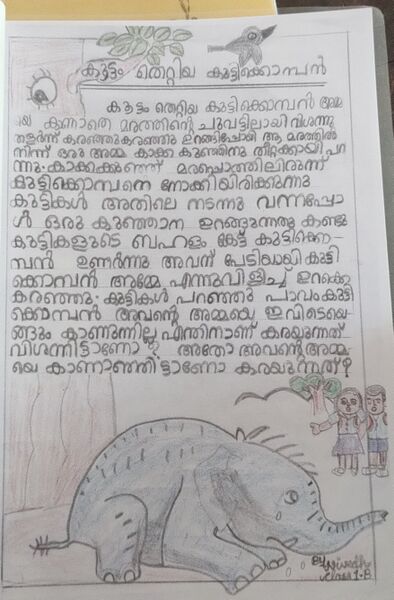 കൂട്ടം തെറ്റിയ കുട്ടിക്കൊമ്പൻ
കൂട്ടം തെറ്റിയ കുട്ടിക്കൊമ്പൻ അമ്മ
യെ കാണാതെ മരത്തിന്റെ ചുവട്ടിലായി വിശന്നു
തളർന്ന് കരഞ്ഞുകരഞ്ഞു ഉറങ്ങിപ്പോയി ആ മരത്തിൽ
നിന്ന് ഒരു അമ്മ കാക്ക കുഞ്ഞിനു തീറ്റക്കായി പറ
ന്നു. കാക്കക്കുഞ്ഞ് മരപ്പൊത്തിലിരുന്ന്
കുട്ടിക്കൊമ്പനെ നോക്കിയിരിക്കുന്നു
കുട്ടികൾ അതിലെ നടന്നു വന്നപ്പോ
ൾ ഒരു കുഞ്ഞാന ഉറങ്ങുന്നതു കണ്ടു
കുട്ടികളുടെ ബഹളം കേട്ട് കുട്ടിക്കൊ-
മ്പൻ ഉണർന്നു അവന് പേടിയായി കുട്ടി
ക്കൊമ്പൻ അമ്മേ എന്നുവിളിച്ച് ഉറക്കെ
കരഞ്ഞു. കുട്ടികൾ പറഞ്ഞു പാവം കുട്ടി
ക്കൊമ്പൻ അവന്റെ അമ്മയെ ഇവിടെയെ-
ങ്ങും കാണുന്നില്ല എന്തിനാണ് കരയുന്നത്
വിശന്നിട്ടാണോ? അതോ അവന്റെ അമ്മ
യെ കാണാഞ്ഞിട്ടാണോ കരയുന്നത്?
By
Nivedh
class 1-B